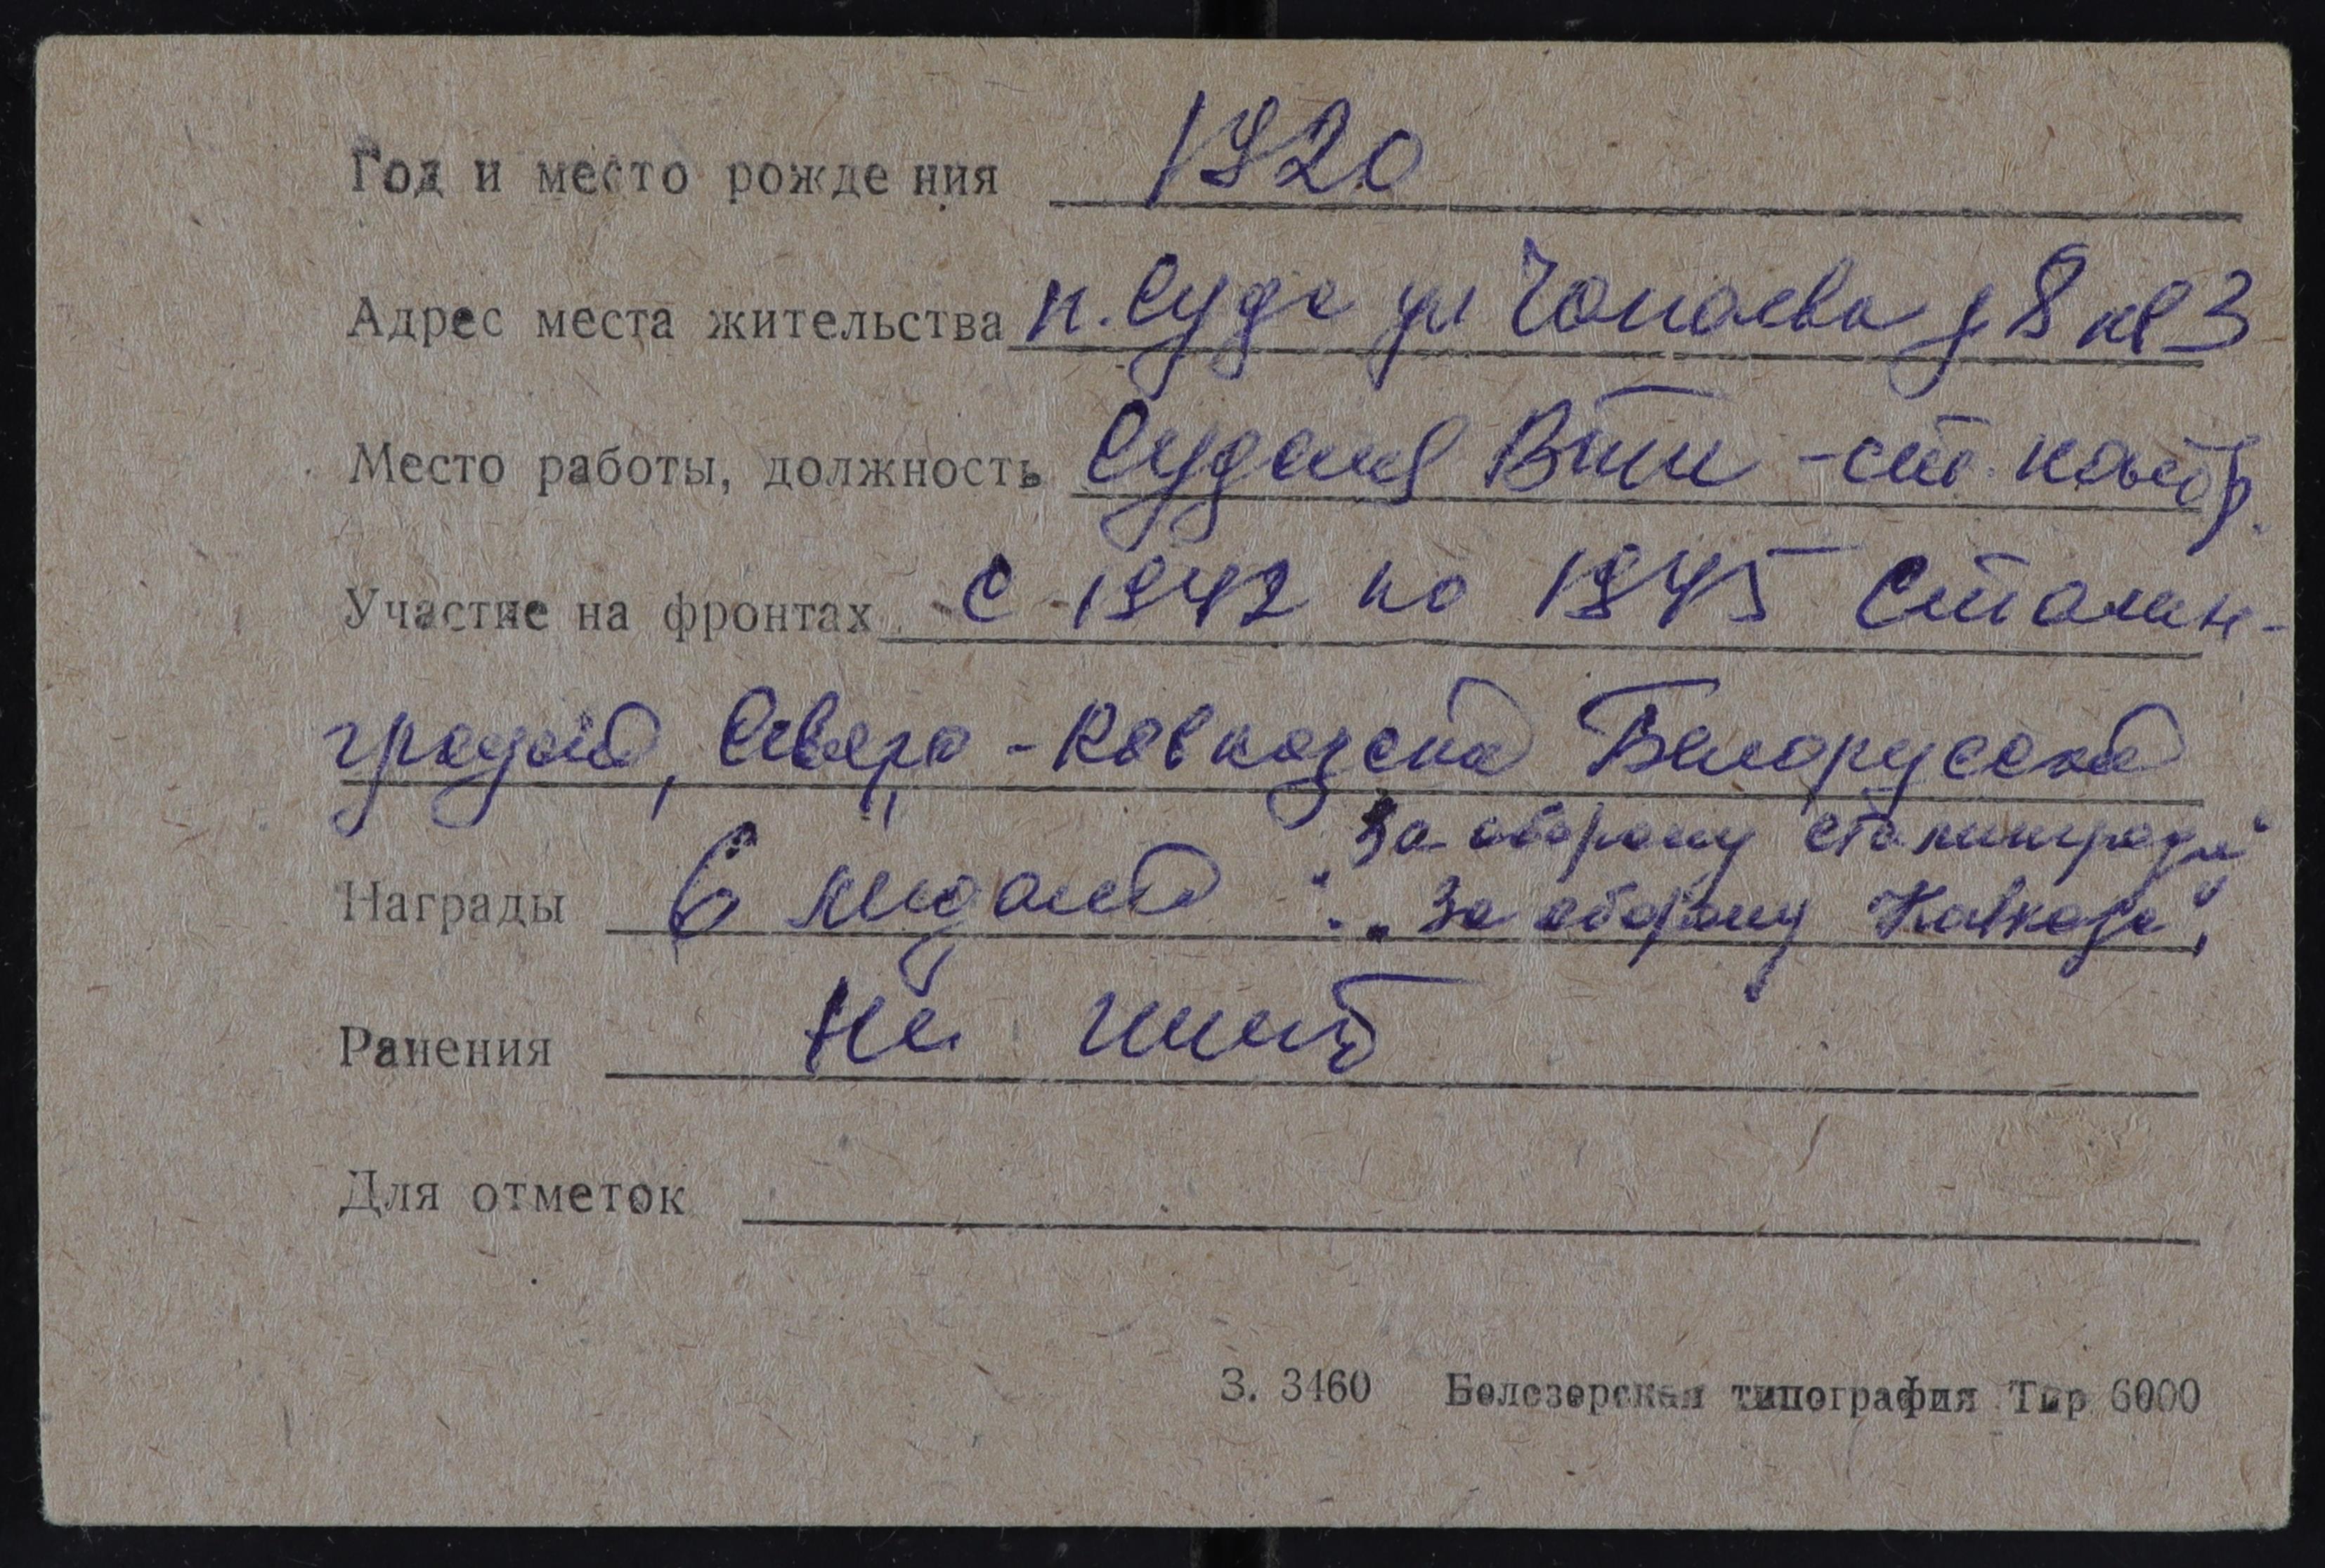 Год и место рождения 1920
Адрес места жительства п. Суда ул Чапаева д 8 кв 3
Место работы, должность Судская - ст.
Участие на фронтах с 1942 по 1945 Сталин-
градский, Северо-Кавказский Белорусский
"За оборону Сталинграда"
Награды 6 медалей : "За оборону Кавказа",
Ранения не имеет
Для отметок
З. 3460 Белозерская типография Тир 6000